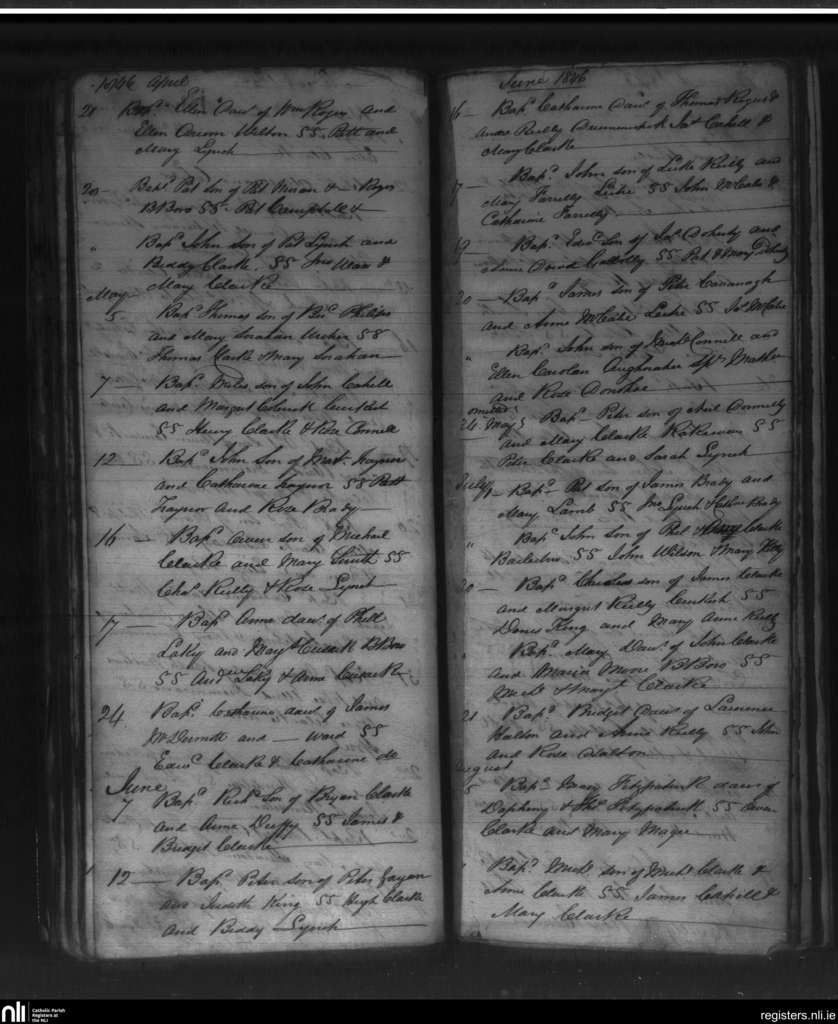 1846 April
21 Bapd Ellen dawr of Wm Roger and
Ellen Wilton SS. Patt and
Mary Lynch
20 — Bapd Pat son of Pat & — Roger
SS. Pat Campbell &
" Bapd John son of Pat Lynch and
Biddy Clarke. SS &
Mary Clarke
May
5 Bapd Thomas son of Philips
and Mary SS
Thomas Clarke & Mary
7 — Bapd Miles son of John Cahill
and Margret
SS Henry Clarke & Rose Connell
12 — Bapd John Son of Mat. Traynor
and Catharine Traynor SS Patt
Traynor and Rose Brady
16 — Bapd Owen son of Michael
Clarke and Mary Smith SS
Chas Reilly & Rose Lynch
17 — Bapd Anne dawr of Phill
Laky and Mary Cusack
SS Andw Laky & Anne Cusack
24 Bapd Catharine dawr of James
McDermott and — Ward SS
Edwd Clarke & Catharine do
June
7 Bapd Richd Son of Bryan Clarke
and Anne Duffy SS James &
Bridget Clarke
12 — Bapd Peter son of Peter
and Judith King SS Hugh Clarke
and Biddy Lynch
June 1846
16 — Bapd Catharine dawr of Thomas &
Reilly Jas Cahill &
Mary Clarke
17 — Bapd John son of Luke Reilly and
Mary Farrelly SS John McCabe &
Catharine Farrelly
19 — Bapd Edwd Son of Jas Doherty and
Anne SS Pat & Mary Doherty
20 — Bapd James son of Peter Cavanagh
and Anne McCabe SS Jas McCabe
" Bapd John son of Michl Connell and
Ellen Carolan
and Rose Donohoe
omitted
24 May Bapd Peter son of Neil Donnelly
and Mary Clarke SS
Peter Clarke and Sarah Lynch
July 1 — Bapd Pat son of James Brady and
Mary Lamb SS Jno Lynch & Brady
" Bapd John son of Pat & Mary Clarke
SS John Wilson & Mary
20 — Bapd son of James Clarke
and Margret Reilly SS
King and Mary Anne Reilly
" Bapd Mary Dawr of John Clarke
and Maria Moore SS
Michl & Margt Clarke
21 Bapd Bridget Dawr of Lawrence
Halton and Anne Reilly SS John
and Rose Halton
August
5 Bapd Mary Fitzpatrick dawr of
& Thos Fitzpatrick SS Owen
Clarke and Mary Magee
" Bapd Michl son of Michl Clarke &
Anne Clarke SS James Cahill &
Mary Clarke
nli
Catholic Parish
Registers at
the NLI
registers.nli.ie